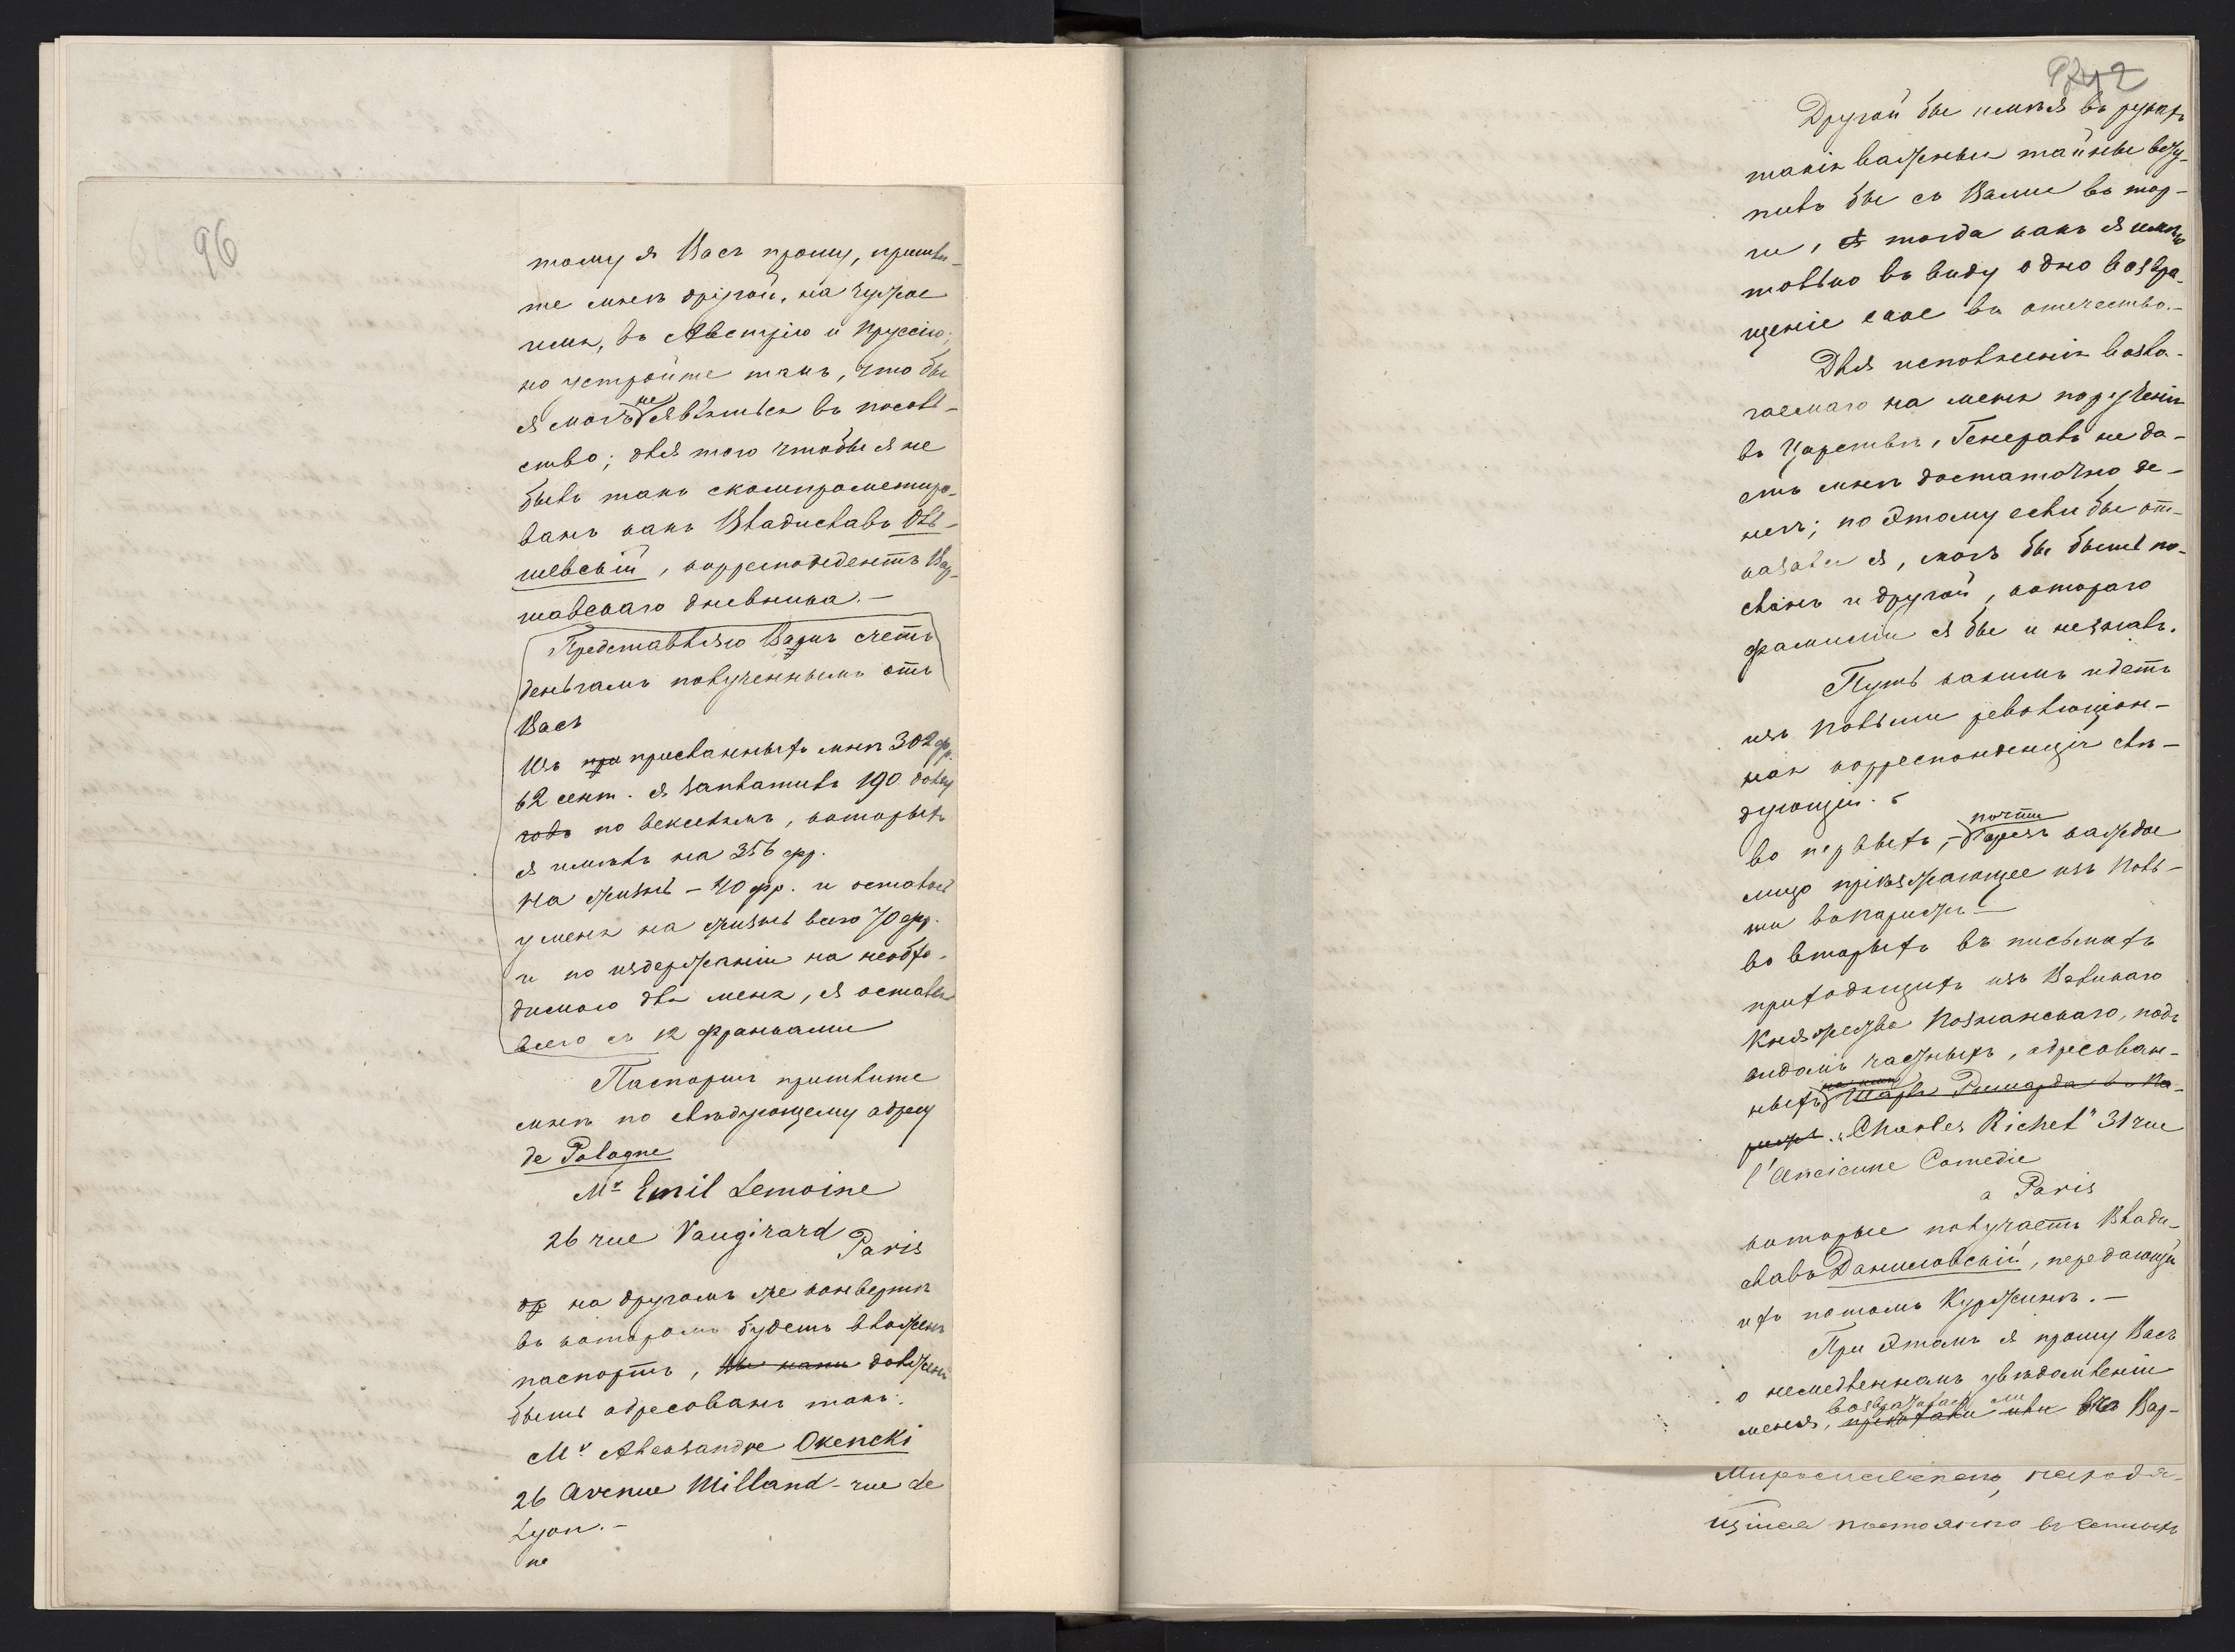 96
тому я Васъ прошу, пришли-
те мнѣ другой, на чужое
имя, въ Австрію и Пруссію;
но устройте такъ, что бы
я могъ не явиться въ посоль-
ство; для того чтобы я не
былъ такъ скомпрометиро-
ванъ какъ Владиславъ Оль-
шевскій, корреспондентъ Вар-
шавскаго дневника. —
Представляю Вамъ счетъ
деньгамъ полученнымъ отъ
Васъ
Изъ при присланныхъ мнѣ 302 фр.
62 сент. я заплатилъ 190. долгу
говъ по векселямъ, которыхъ
я имѣлъ на 356 фр.
на жизнь — 40 фр. и осталось
у меня на жизнь всего 70 фр.
и по издержаніи на необхо-
димое для меня, я остался
всего съ 12 франками
Паспортъ пришлите
мнѣ по слѣдующему адресу
de Pologne
Mr Emil Lemoine
26 rue Vaugirard
Paris
др на другомъ же конвертѣ
въ которомъ будетъ вложенъ
паспортъ, долженъ
быть адресованъ такъ:
Mr Alexandre Okencki
26 Avenue Milland - rue de
Lyon. —
не
Другой бы имѣя въ рукахъ
такія важныя тайны всту-
пилъ бы съ Вами въ тор-
ги, тогда какъ я имѣю
только въ виду одно возвра-
щеніе свое въ отечество. —
Для исполненія возла-
гаемаго на меня порученія
въ Царствѣ, Генералъ не да-
стъ мнѣ достаточно де-
негъ; по этому если бы от-
казался я, могъ бы быть по-
сланъ и другой, котораго
фамиліи я бы и не зналъ.
Путь какимъ идетъ
изъ Польши революціон-
ная корреспонденція слѣ-
дующій.
во первыхъ, — почти Чрезъ каждое
лицо пріѣзжающее изъ Поль-
ши въ Парижъ —
во вторыхъ въ письмахъ
приходящихъ изъ Великаго
Княжества Познанскаго, подъ
видомъ частныхъ, адресован-
ныхъ на имя Шарль Ришарда въ Па-
рижъ. „Charles Richet" 31 rue
l'Ancienne Comedie
a Paris
которые получаетъ Влади-
славъ Даниловскій, передающій
ихъ потомъ Куржинѣ. —
При этомъ я прошу Васъ
о немедленномъ увѣдомленіи
меня, возвратиться ли или въ Вар-
Мирославскаго, находя-
щійся постоянно въ